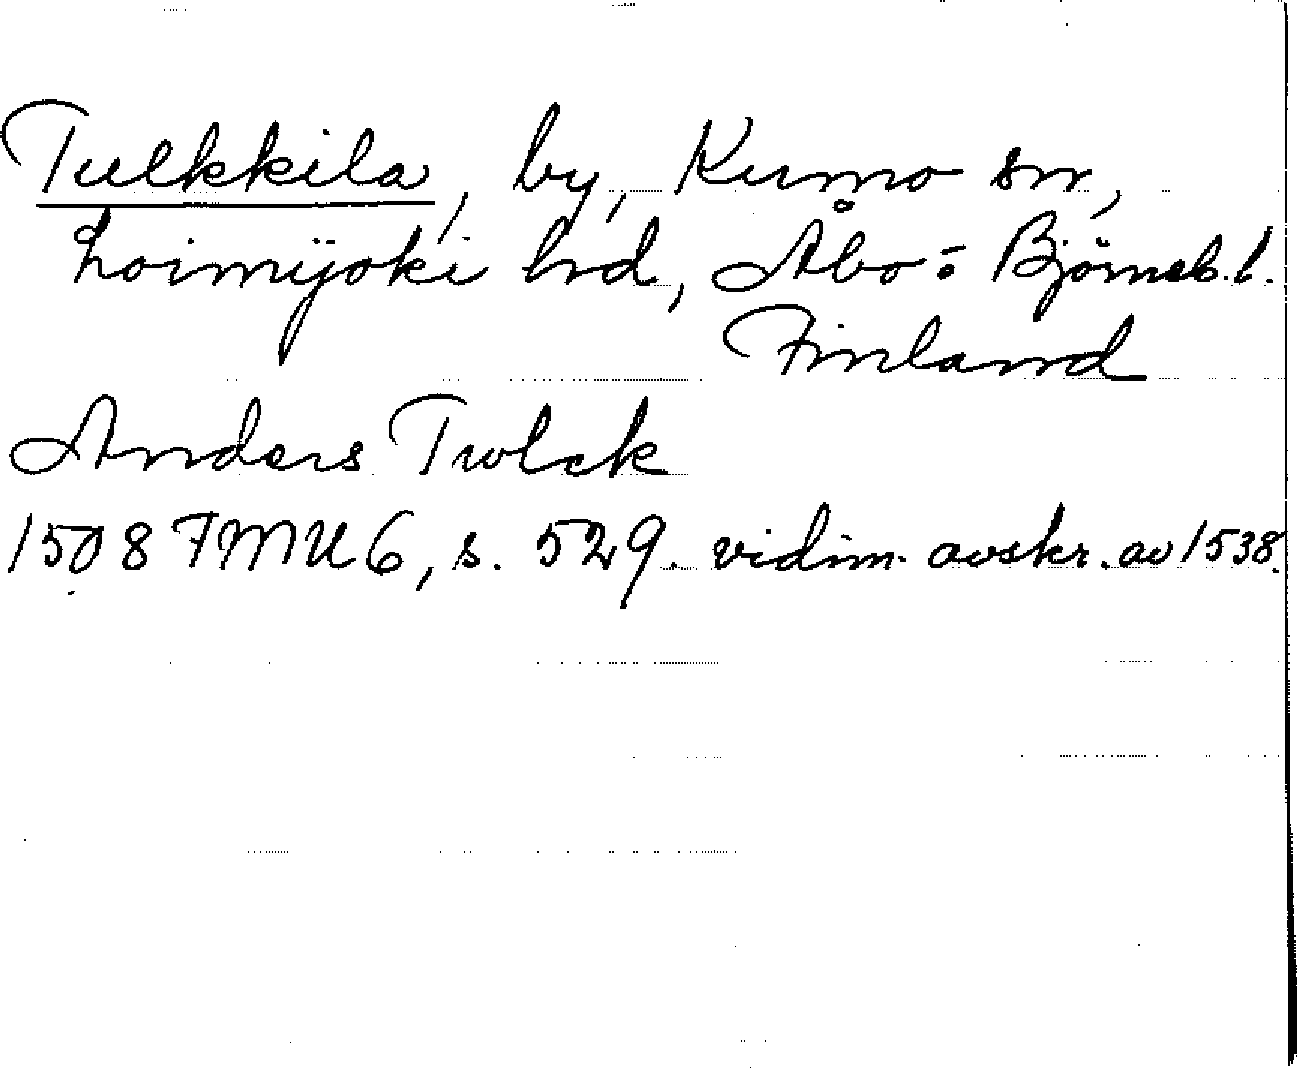 Tulkkila, by, Kumo sn,
Loimijoki hd, Åbo- o Björneb. l.
Finland
Anders Twlck
1508 FMU 6, s. 529. vidim. avskr. av 1538.